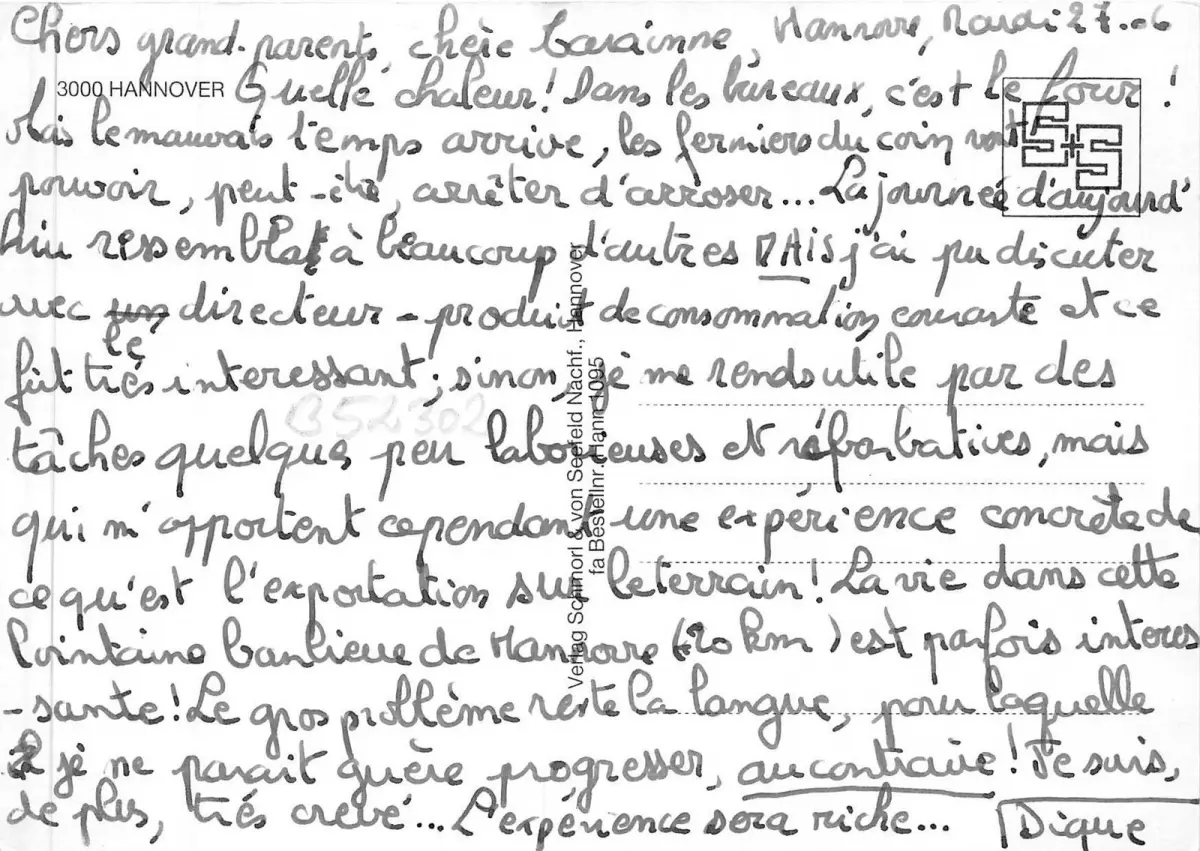 Chers grand-parents, chère Hannovre, Mardi 27-06
3000 HANNOVER Quelle chaleur! Dans les bureaux, c'est le four!
Mais le mauvais temps arrive, les fermiers du coin vont
pouvoir, peut-être, arrêter d'arroser... La journée d'aujourd'
hui ressembla à beaucoup d'autres MAIS j'ai pu discuter
avec un directeur - produit de consommation courante et ce
le
fût trés interessant; sinon, je me rends utile par des
B52302
tâches quelque peu laborieuses et rébarbatives, mais
qui m'apportent cependant une expérience concrète de
ce qu'est l'exportation sur le terrain! La vie dans cette
lointaine banlieue de Hannovre (20 km) est parfois interes
-sante! Le gros problème reste la langue, pour laquelle
je ne parait guère progresser, au contraire! Je suis,
de plus, trés crevé... L'expérience sera riche...
S+S
Verlag Schmorl & von Seefeld Nachf., Hannover
fa Bestellnr. Hann 1095